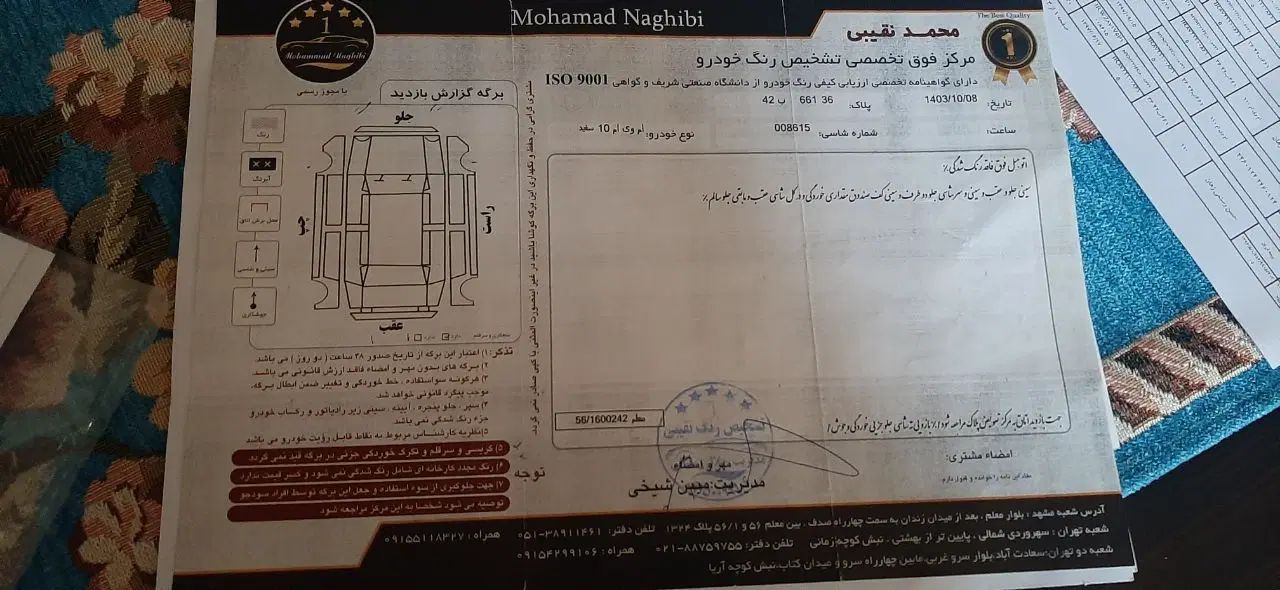 Mohamad Naghibi
1
Mohammad Naghibi
با مجوز رسمی
The Best Quality
1
محمد نقیبی
مرکز فوق تخصصی تشخیص رنگ خودرو
دارای گواهینامه تخصصی ارزیابی کیفی رنگ خودرو از دانشگاه صنعتی شریف و گواهی ISO 9001
تاریخ: 1403/10/08
پلاک: 36 661 ب 42
ساعت:
شماره شاسی: 008615
نوع خودرو: ام وی ام 10 سفید
اتومبیل فوق فاقد رنگ شدگی٪
سینی جلو و عقب و سینی و سرشاسی جلو دو طرف و سینی کف صندوق مقداری خوردگی و در کل شاسی عقب و مابقی جلو سالم٪
معلم 56/1600242
تشخیص رنگ نقیبی
مهر و امضاء
مدیریت: مبین شیخی
امضاء مشتری:
مفاد این نامه را خوانده و قبول دارم.
برگه گزارش بازدید
جلو
چپ
راست
عقب
رنگ
آبرنگ
محل برش اتاق
سینی و شاسی
جوشکاری
تذکر: ۱) اعتبار این برگه از تاریخ صدور ۴۸ ساعت (دو روز) می باشد.
۲) برگه های بدون مهر و امضاء فاقد ارزش قانونی می باشند.
۳) هرگونه سواستفاده، خط خوردگی و تغییر ضمن ابطال برگه،
موجب پیگرد قانونی خواهد شد.
۴) سپر، جلو پنجره، آیینه، سینی زیر رادیاتور و رکاب خودرو
جزء رنگ شدگی نمی باشد
۵) نظریه کارشناس مربوط به نقاط قابل رؤیت خودرو می باشد
توجه
۵) گریسی و سرقلم و تکرگ خوردگی جزئی در برگه قید نمی گردد.
۶) رنگ مجدد کارخانه ای شامل رنگ شدگی نمی شود و کسر قیمت ندارد
۷) جهت جلوگیری از سوء استفاده و جعل این برگه توسط افراد سودجو
توصیه می شود شخصا به این مرکز مراجعه شود.
آدرس شعبه مشهد: بلوار معلم، بعد از میدان زندان به سمت چهارراه صدف، بین معلم ۵۶ و ۵۶/۱ پلاک ۱۳۲۴ تلفن دفتر: ۳۸۹۱۱۴۶۱-۰۵۱ همراه: ۰۹۱۵۵۱۱۸۳۲۷
شعبه تهران: سهروردی شمالی، پایین تر از بهشتی، نبش کوچه زمانی تلفن دفتر: ۸۸۷۵۹۷۵۵-۰۲۱ همراه: ۰۹۱۵۴۲۹۹۱۰۶
شعبه دو تهران: سعادت آباد، بلوار سرو غربی، مابین چهارراه سرو و میدان کتاب، نبش کوچه آریا